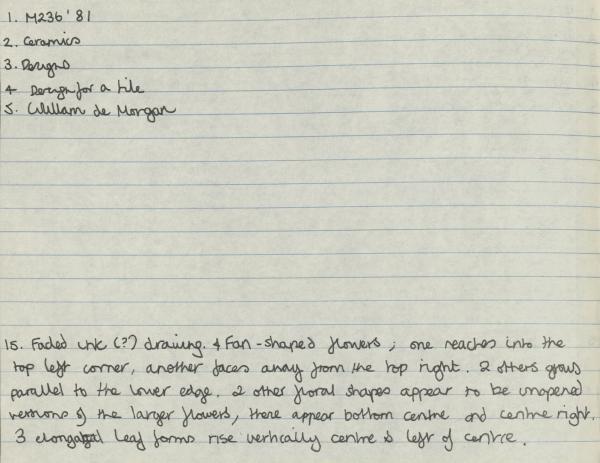 1. M236'81
2. Ceramics
3. Designs
4 Design for a tile
5. William de Morgan
15. Faded ink (?) drawing. 4 Fan-shaped flowers; one reaches into the
top left corner, another faces away from the top right. 2 others grow
parallel to the lower edge. 2 other floral shapes appear to be unopened
versions of the larger flowers, these appear bottom centre and centre right.
3 elongated leaf forms rise vertically centre & left of centre.